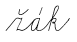 žák